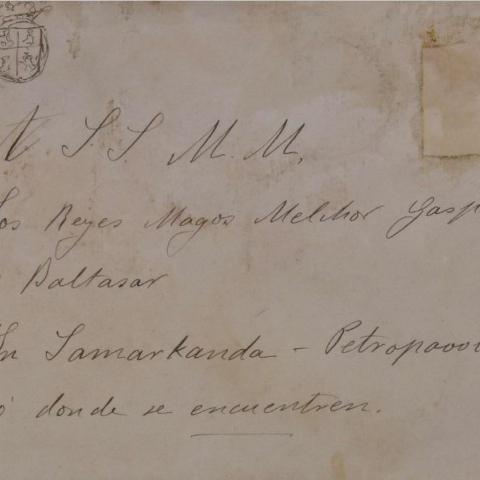 A S.S. M.M,
Los Reyes Magos Melchor Gasp
Baltasar
En Samarkanda - Petropavov
ó donde se encuentren.